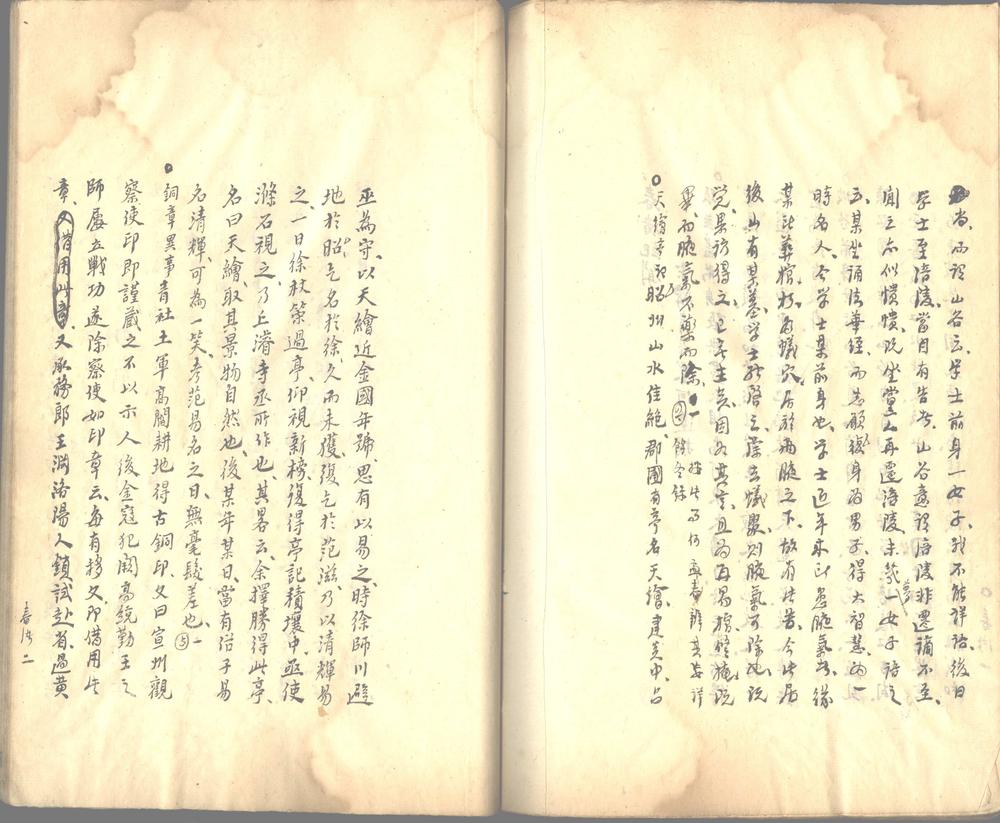 尚而謂山谷云学士前身一女子我不能詳語後日
学士至涪陵當自有告者山谷意謂涪陵非遷謫不至
聞之亦似憒憒既坐党人再遷涪陵未幾夢一女子語之
云某生誦法華經而志願後身为男子得大智慧为一
時名人今学士某前身也学士近年来所患腋氣者緣
某所葬棺朽为蟻穴居於兩腋之下故有此苦今此居
後山有某墓学士能啓之除去蟻聚則腋氣可除也既
覚果訪得之已無主矣因为其一且为再易棺修掩既
畢而腋氣不藥而除
天繪亭記昭州山水佳絶郡圃有亭名天繪建炎中吕
丕為守以天繪近金國年號思有以易之時徐師川避
地於昭乞名於徐久而未獲復乞於范滋乃以清輝易
之一日徐杖策過亭仰視新榜復得亭記積壤中亟使
滌石視之乃丘濬寺丞所作也其畧云余擇勝得此亭
名曰天繪取其景物自然也後某年某日當有俗子易
名清輝可為一笑考范易名之日無毫髮差也
銅章異事青社土軍高闊耕地得古銅印文曰宣州觀
察使印即謹藏之不以示人後金寇犯闕高統勤王之
師屢立戰功遂除察使如印章云每有移文即借用此
章又借用此章又承務郎王渊洛陽人鎖試赴省過黄
春渚二